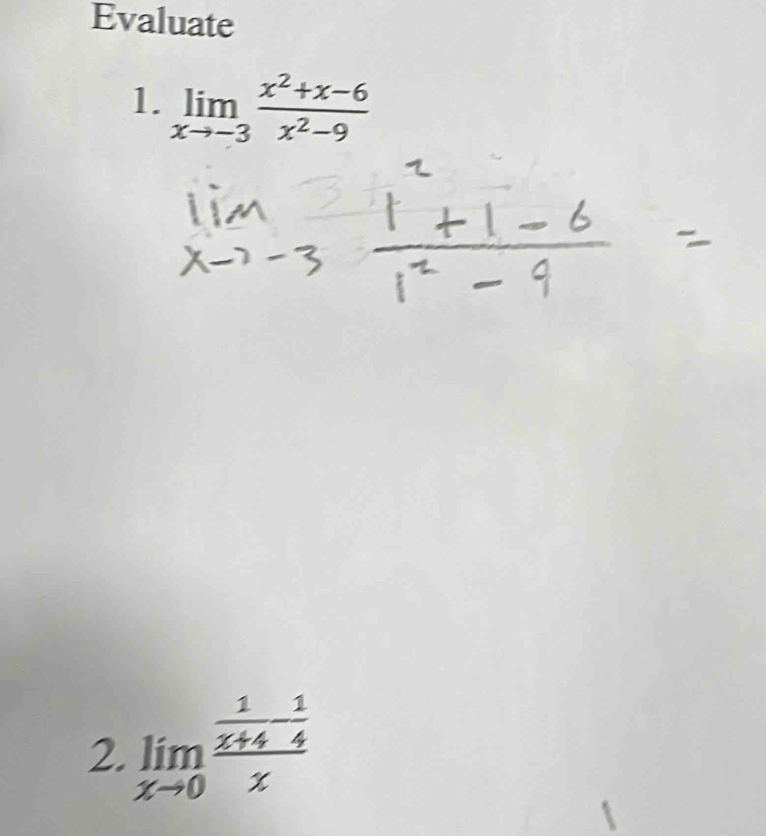 Evaluate
1. lim x→-3 (x²+x-6)/(x²-9)
lim x→-3 (1²+1-6)/(1²-9) =
2. lim x→0 (1/(x+4) - 1/4)/x